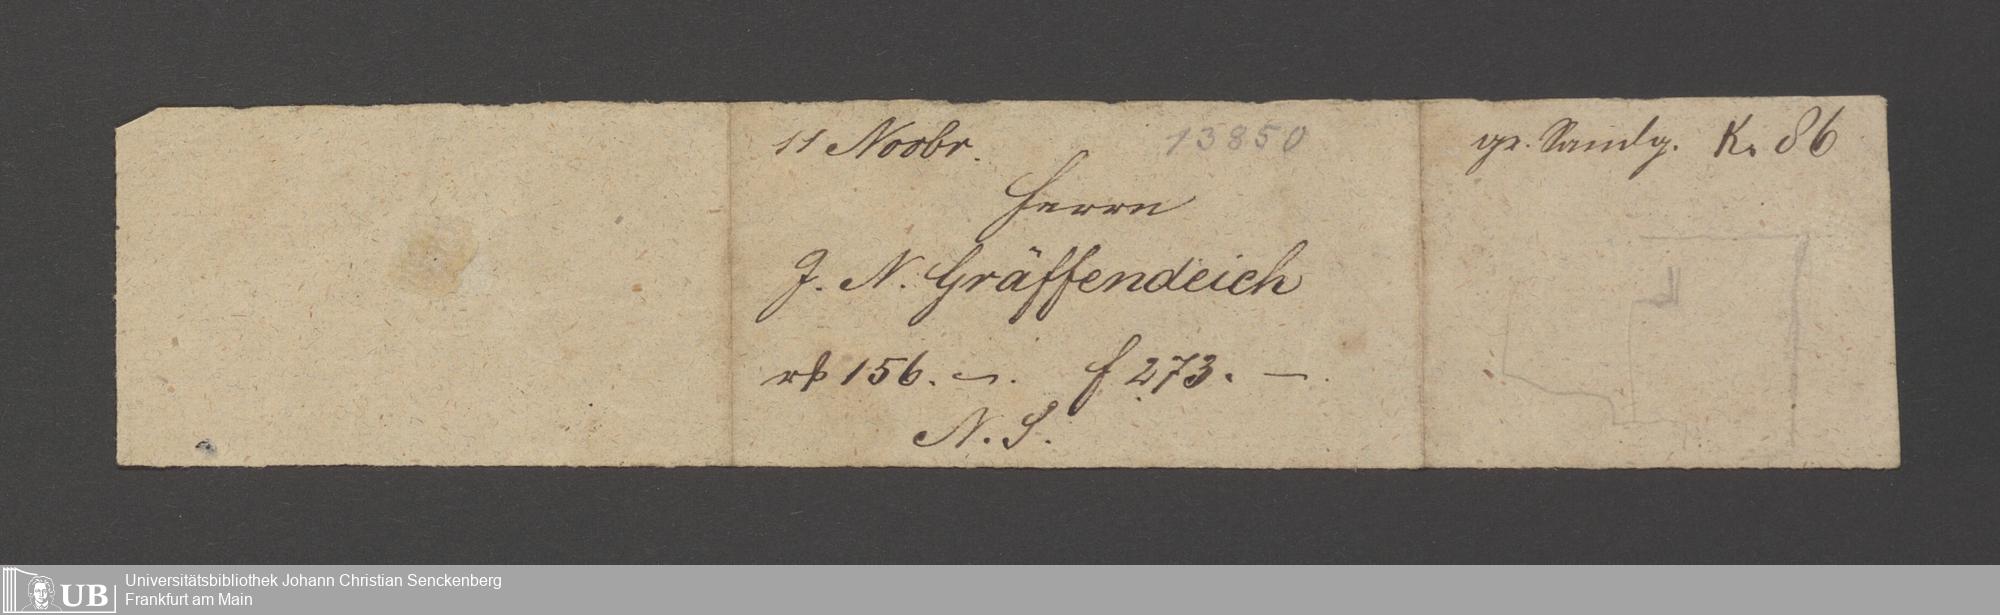 11 Novbr. 13850
Herrn
J. N. Gräffendeich
rh 156. —. f 273. —.
N. S.
gr. Sandg. K. 86
UB Universitätsbibliothek Johann Christian Senckenberg
Frankfurt am Main